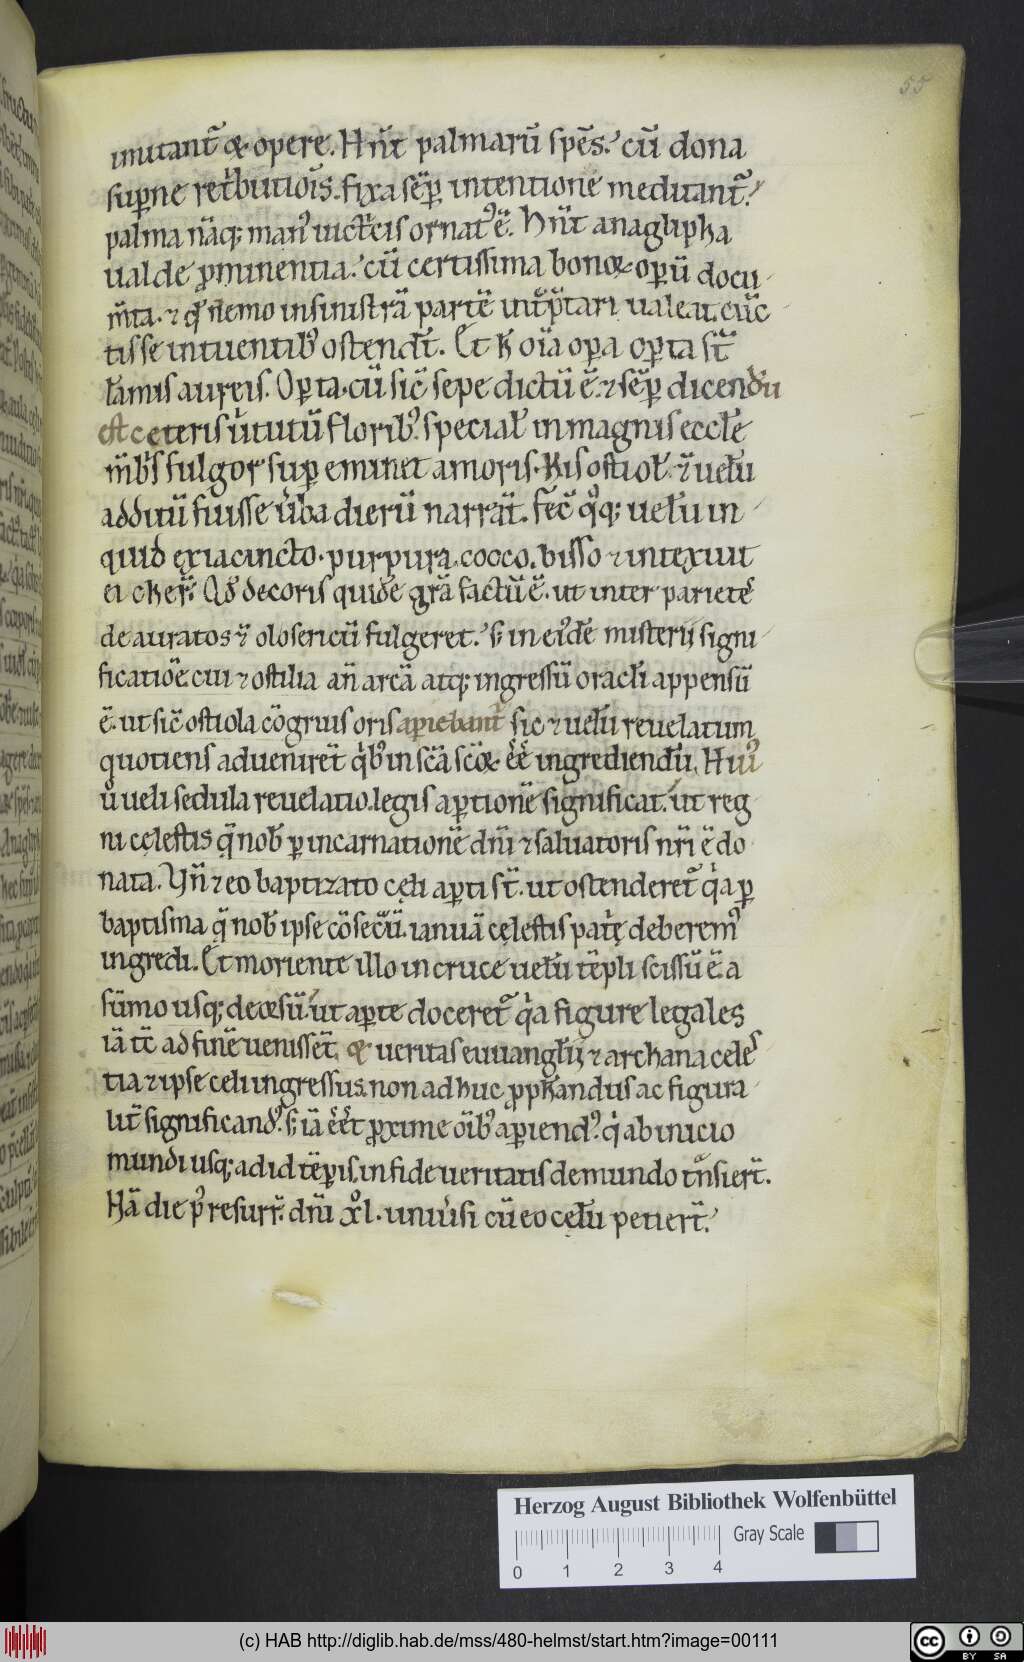 55
imitant᷑ & opere. Hn̄t palmarū spēs. cū dona
suꝑne ret'butiōis. fixa sēꝑ intentione meditant᷑.
palma nāq; man' uict'cis ornat' ē. Hn̄t anaglipha
ualde ꝓminentia. cū certissima bonoꝝ oꝑū docu
m̄ta. ⁊ q̄ nemo insinistrā partē int̄p̄tari ualeat. cūc
tis se intuentib' ostendt̄. Et h̄ oīa oꝑa oꝑta st̄
lamis aureis. Oꝑta. cū sic̄ sepe dictū ē. ⁊ sēꝑ dicendū
est ceteris u'tutū florib'. special' in magnis eccl'e
m̄b's fulgor suꝑ eminet amoris. His ostiol'. ⁊ uel'u
additū fuisse u'ba dierū narrāt. fēc̄ q°q; uel'u in
quid ex iacincto. purpura. cocco. bisso ⁊ intexuit
ei cher̄. Qd' decoris quidē gr̄a factū ē. ut inter parietē
de auratos ⁊ olosericū fulgeret. s; in eidē misterii signi
ficatiōe cui ⁊ ostilia an̄ arcā atq; ingressū oracl'i appensū
ē. ut sic̄ ostiola cōgruis oris aꝑiebant᷑ sic ⁊ uel'u reuelatum
quotiens adueniret̄ q'b' in sc̄a sc̄oꝝ ēē ingrediendū. Hui'
ū ueli sedula reuelatio. legis aꝑtionē significat. ut reg
ni celestis q̄ nob' ꝑ incarnationē dn̄i ⁊ saluatoris nr̄i ē do
nata. Un̄ ⁊ eo baptizato celi aꝑti st̄. ut ostenderet᷑ q'a ꝑ
baptisma q̄ nob' ipse cōsecūū. ianuā celestis patrie deberem'
ingredi. Et moriente illo in cruce uel'u tēpli scissū ē a
sūmo usq; deorsū ut aꝑte doceret᷑ q'a figure legales
iā tc̄ ad finē uenissēt. & ueritas euuangl'ii ⁊ archana cele
tia ⁊ ipse celi ingressus. non adhuc ꝓphandus ac figura
lit̄ significand'. s; iā ēēt ꝓxime oīb' aꝑiend'. q' ab inicio
mundi usq; ad id tēꝑis, in fide ueritatis de mundo tn̄sier̄t.
Hā die p' resurr̄. dn̄i xl. uniu'si cū eo cel'u petier̄t.
Herzog August Bibliothek Wolfenbüttel
Gray Scale
0 1 2 3 4
(c) HAB http://diglib.hab.de/mss/480-helmst/start.htm?image=00111
cc BY SA